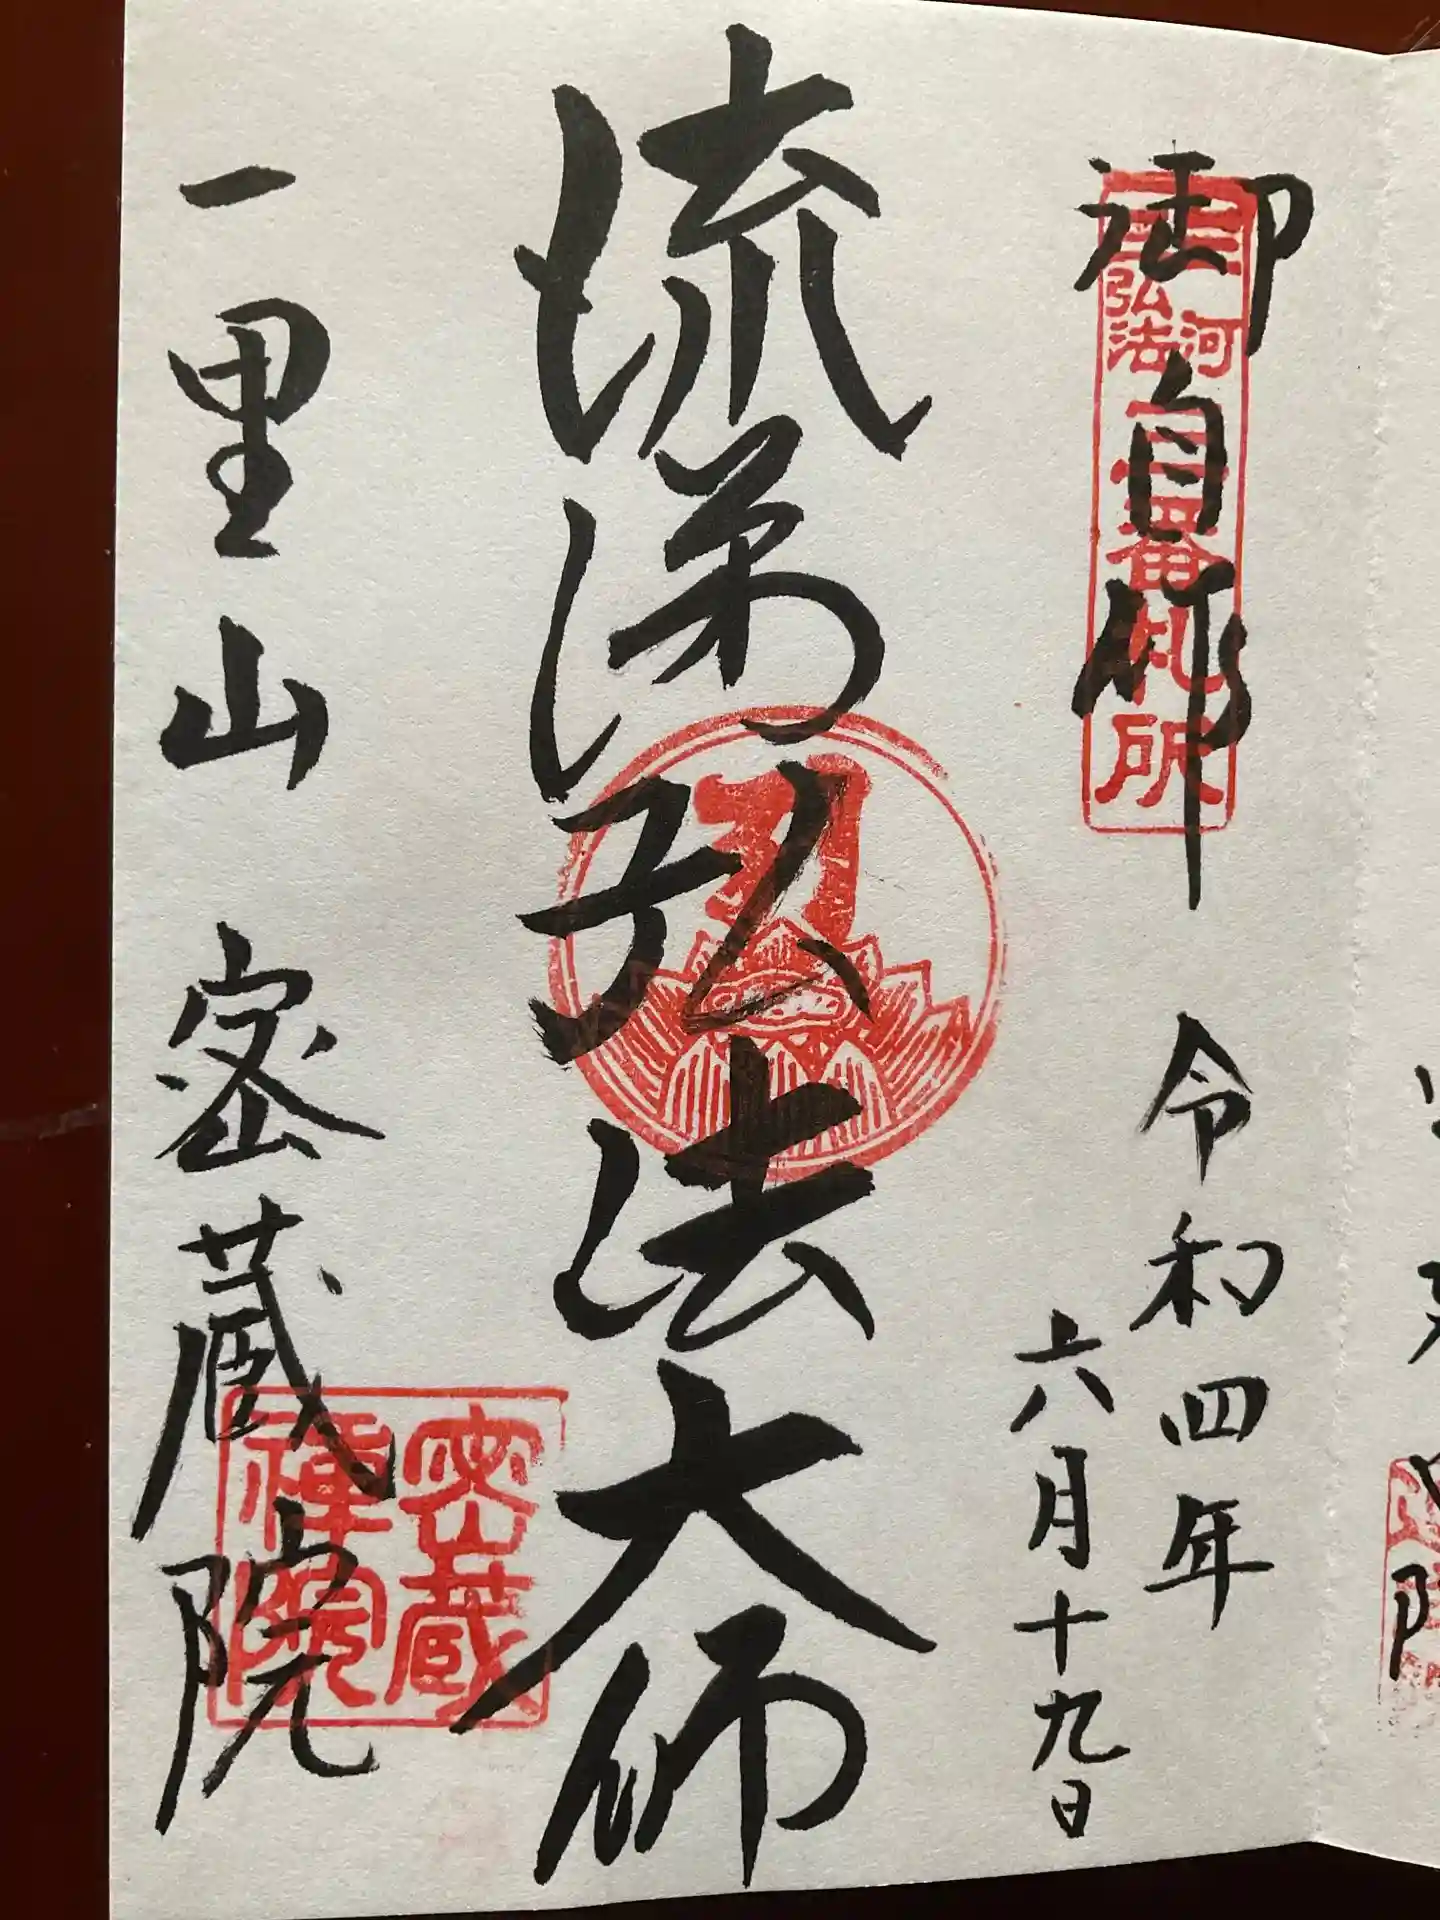 三河
弘法
三番札所
御自作
令和四年
六月十九日
流涕弘法大師
一里山 密蔵院
密蔵
禅院